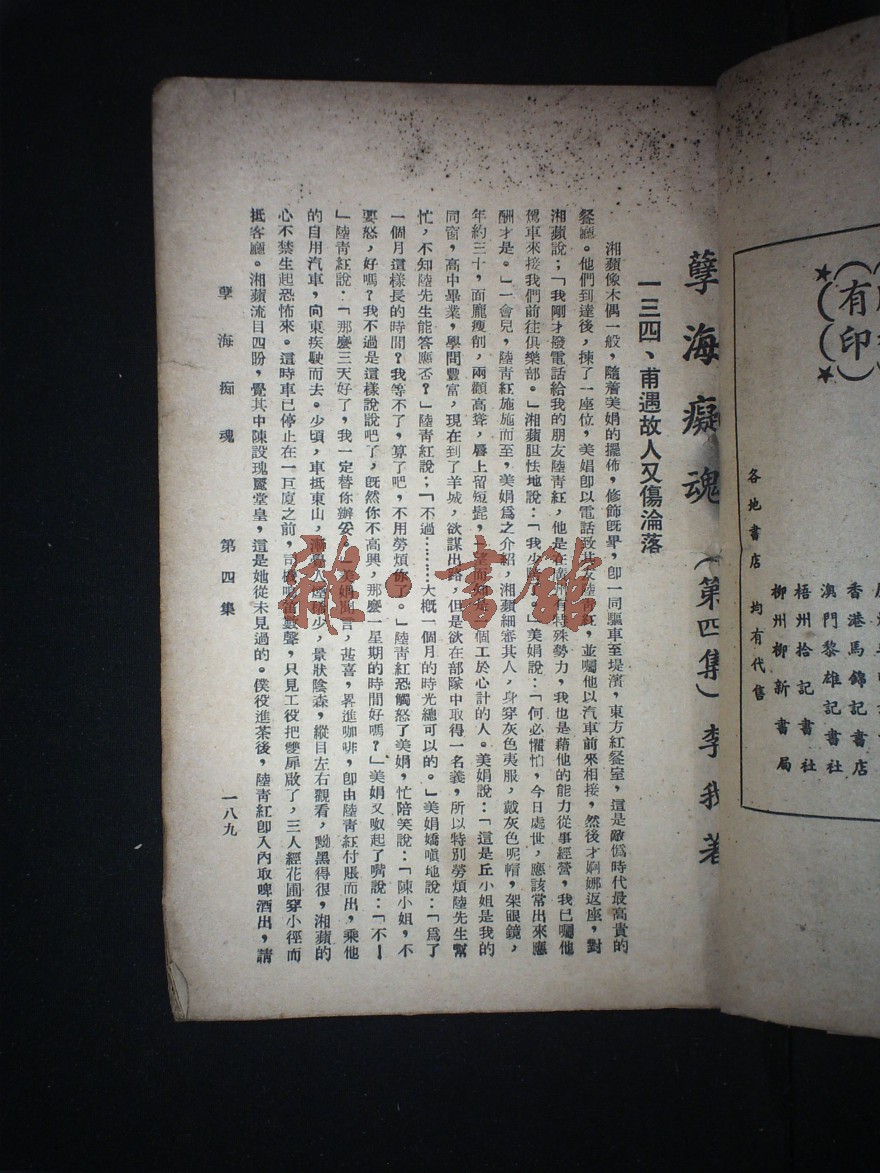 孽海癡魂（第四集）李我著
一三四、甫遇故人又傷淪落
湘蘋像木偶一般，隨着美娟的擺佈，修飾旣畢，卽一同驅車至堤濱，東方紅餐室，這是敵僞時代最高貴的
餐廳。他們到達後，揀了一座位，美娟卽以電話致其友陸青紅，並囑他以汽車前來相接，然後才婀娜返座，對
湘蘋說；「我剛才撥電話給我的朋友陸青紅，他是在 有特殊勢力，我也是藉他的能力從事經營，我已囑他
駕車來接我們前往俱樂部。」湘蘋胆怯地說：「我少 」美娟說：「何必懼怕，今日處世，應該常出來應
酬才是。」一會兒，陸青紅施施而至，美娟爲之介紹，湘蘋細審其人，身穿灰色夷服，戴灰色呢帽，架眼鏡，
年約三十，面龐瘦削，兩顴高聳，唇上留短髭，一望而知是一個工於心計的人。美娟說：「這是丘小姐是我的
同窗，高中畢業，學問豐富，現在到了羊城，欲謀出路，但是欲在部隊中取得一名義，所以特別勞煩陸先生幫
忙，不知陸先生能答應否？」陸青紅說；「不過………大概一個月的時光總可以的。」美娟嬌嗔地說：「爲了
一個月這樣長的時間？我等不了，算了吧，不用勞煩你了。」陸青紅恐觸怒了美娟，忙陪笑說：「陳小姐，不
要怒，好嗎？我不過是這樣說說吧了，旣然你不高興，那麼一星期的時間好嗎？」美娟又呶起了嘴說：「不！
」陸青紅說：「那麼三天好了，我一定替你辦妥。」美娟聞言，甚喜，畧進咖啡，卽由陸青紅付賬而出，乘他
的自用汽車，向東疾駛而去。少頃，車抵東山，漸覺人烟稀少，景狀陰森，縱目左右觀看，黝黑得很，湘蘋的
心不禁生起恐怖來。這時車已停止在一巨廈之前，司機鳴笛數聲，只見工役把雙扉啟了，三人經花圃穿小徑而
抵客廳。湘蘋流目四盼，覺其中陳設瑰麗堂皇，這是她從未見過的。僕役進茶後，陸青紅卽入內取啤酒出，請
孽海痴魂 第四集 一八九
有
印
香港馬錦記書店
澳門黎雄記書社
梧州拾記書社
柳州柳新書局
各地書店 均有代售
雜·書館